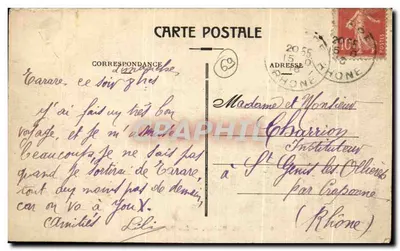 CARTE POSTALE
CORRESPONDANCE
ADRESSE
69
RHONE
Tarare, ce soir 7 hes
J'ai fait un très bon
voyage, et je m'
beaucoup, je ne sais pas
quand je sortirai de Tarare,
pas de demain,
car on va à Joux.
Amitiés Lili
Madame et Monsieur
Charrion
Instituteur
à St Genis les Ollières
par Craponne
(Rhône)